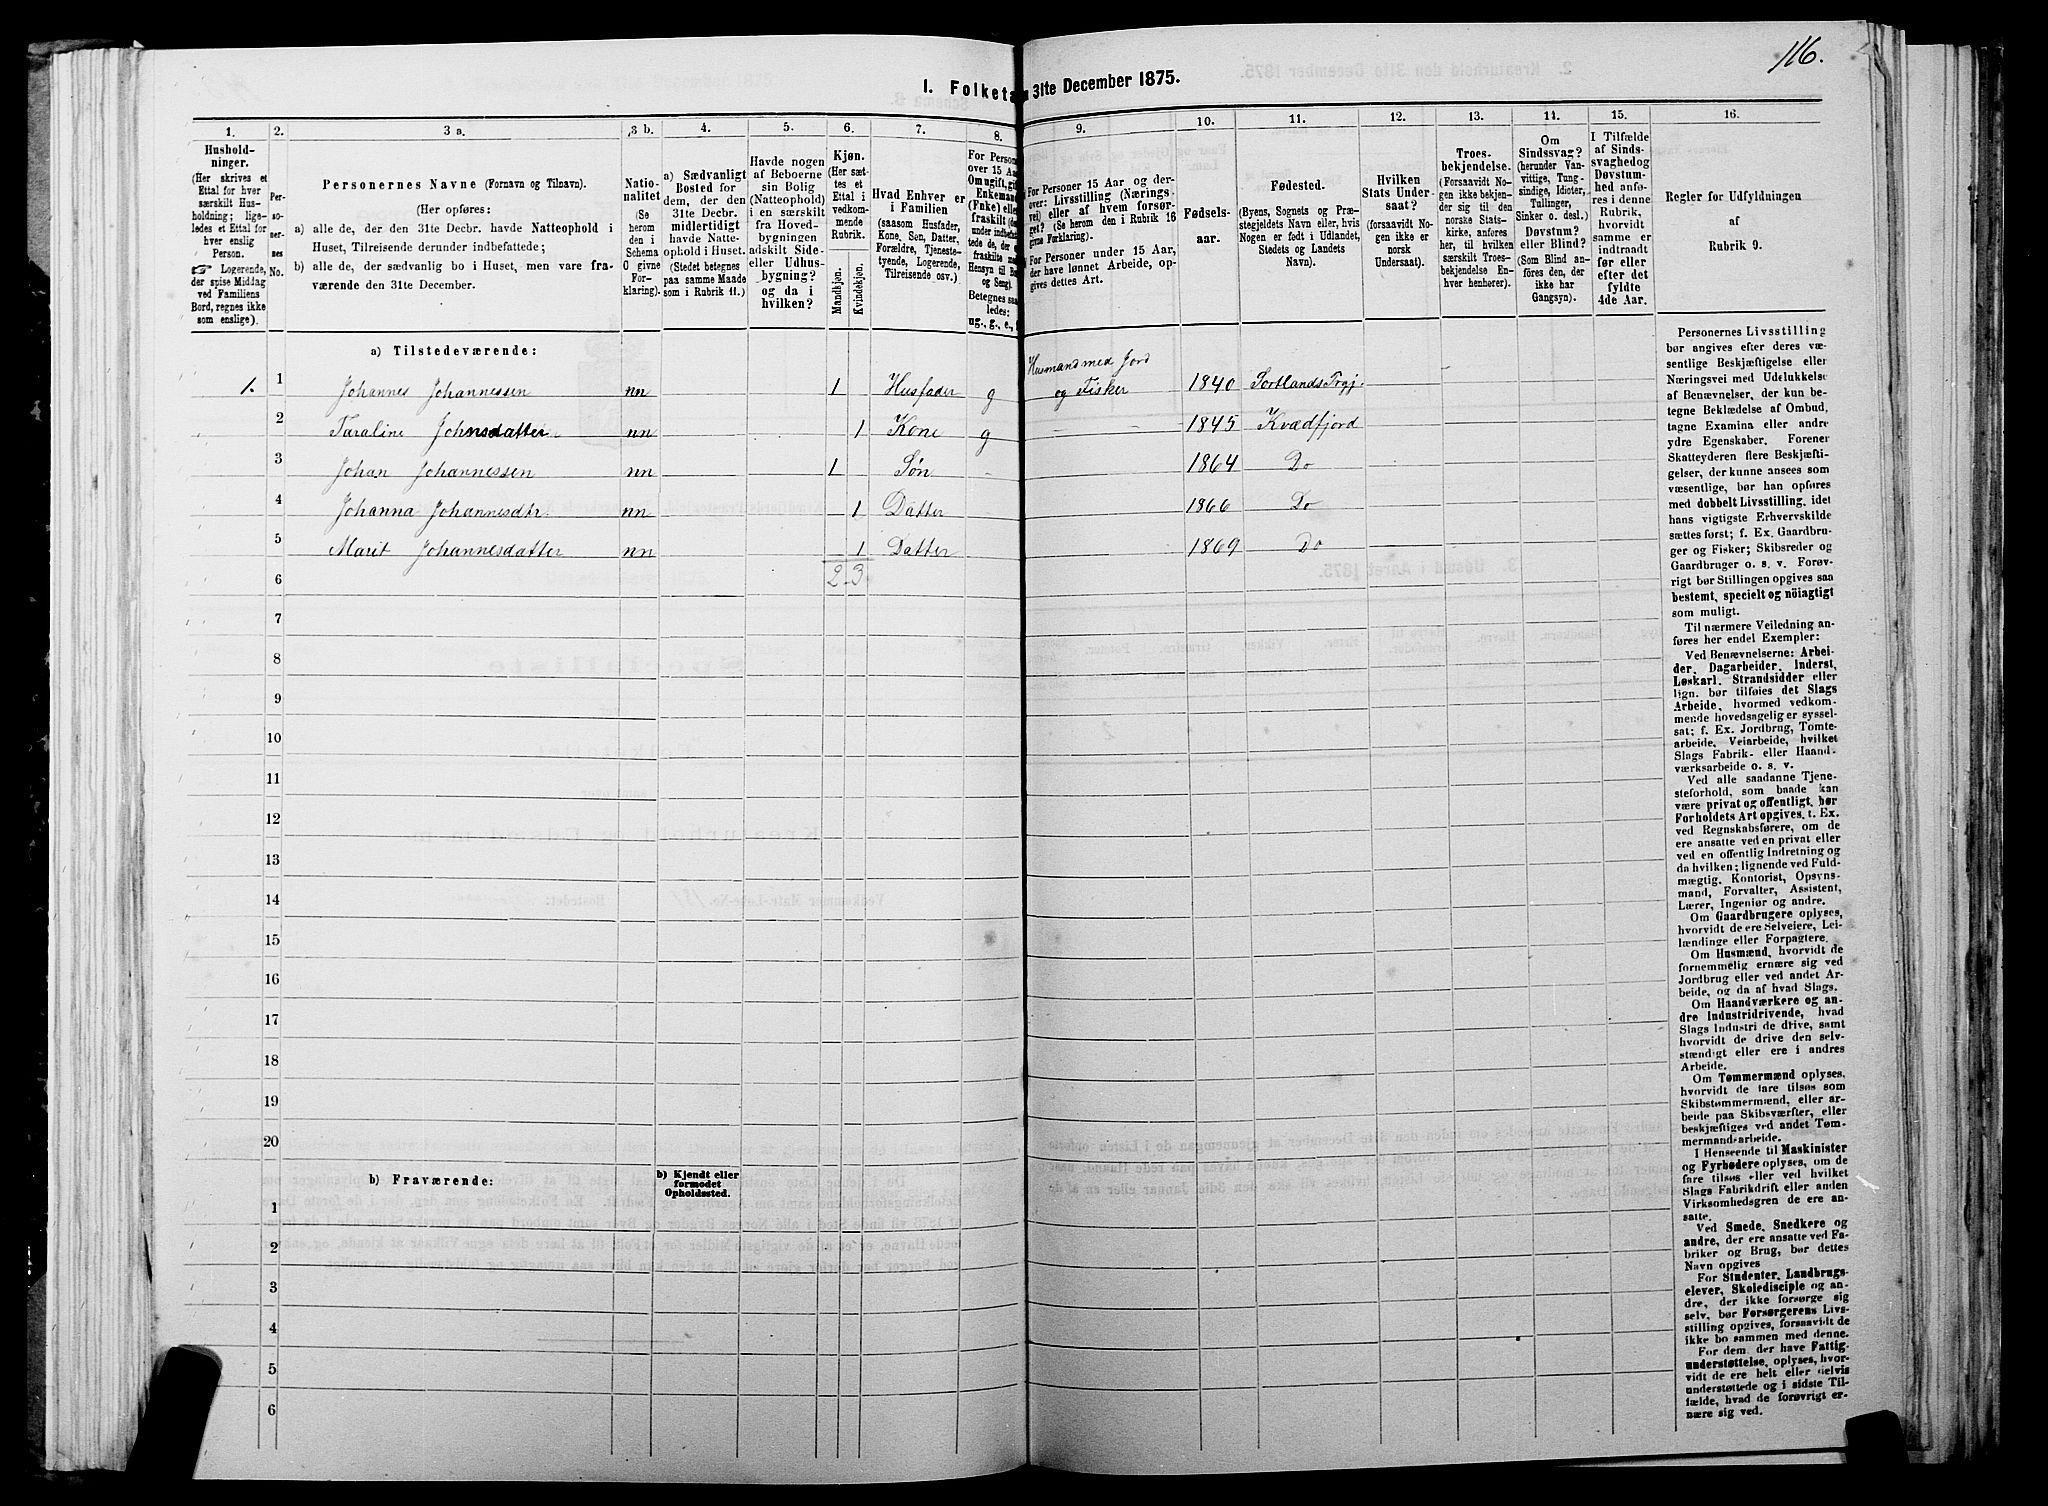 116.
I. Folketa 31te December 1875.
1. 2. 3 a. 3 b. 4. 5. 6. 7. 8. 9. 10. 11. 12. 13. 14. 15. 16.
Hushold-
ninger.
(Her skrives et
Ettal for hver
særskilt Hus-
holdning; lige-
ledes et Ettal for
hver enslig
Person.
☞ Logerende,
der spise Middag
ved Familiens
Bord, regnes ikke
som enslige).
Per-
so-
ner-
nes
No.
Personernes Navne (Fornavn og Tilnavn).
(Her opføres:
a) alle de, der den 31te Decbr. havde Natteophold i
Huset, Tilreisende derunder indbefattede;
b) alle de, der sædvanlig bo i Huset, men vare fra-
værende den 31te December.
Natio-
nalitet
(Se
herom
den i
Schema
O givne
For-
klaring).
a) Sædvanligt
Bosted for
dem, der den
31te Decbr.
midlertidigt
havde Natte-
ophold i Huset.
(Stedet betegnes
paa samme Maade
som i Rubrik 11.)
Havde nogen
af Beboerne
sin Bolig
(Natteophold)
i en særskilt
fra Hoved-
bygningen
adskilt Side-
eller Udhus-
bygning?
og da i
hvilken?
Kjøn.
(Her sæt-
tes et
Ettal i
vedkom-
mende
Rubrik.
Mandkjøn.
Kvindekjøn.
Hvad Enhver er
i Familien
(saasom Husfader,
Kone, Søn, Datter,
Forældre, Tjeneste-
tyende, Logerende,
Tilreisende osv.)
For Person
over 15 Aar
Om ugift, gif
Enkemand
(Enke) elle
fraskilt (de
under indbefat-
tede de, der e
fraskilte me
Hensyn til Bo
og Seng).
Betegnes saa
ledes:
ug., g., e.,
For Personer 15 Aar og der-
over: Livsstilling (Nærings-
vei) eller af hvem forsør-
get? (Se herom den i Rubrik 16
givne Forklaring).
For Personer under 15 Aar,
der have lønnet Arbeide, op-
gives dettes Art.
Fødsels-
aar.
Fødested.
(Byens, Sognets og Præ-
stegjeldets Navn eller, hvis
Nogen er født i Udlandet,
Stedets og Landets
Navn).
Hvilken
Stats Under-
saat?
(forsaavidt No-
gen ikke er
norsk
Undersaat).
Troes-
bekjendelse.
(Forsaavidt No-
gen ikke bekjen-
der sig til den
norske Stats-
kirke, anføres
her, til hvilken
særskilt Troes-
bekjendelse En-
hver henhører).
Om
Sindssvag?
(herunder Van-
vittige, Tung-
sindige, Idioter,
Tullinger,
Sinker o. desl.)
Døvstum?
eller Blind?
(Som Blind an-
føres den, der
ikke har
Gangsyn).
I Tilfælde
af Sinds-
svaghed og
Døvstum-
hed anfø-
res i denne
Rubrik,
hvorvidt
samme er
indtraadt
før eller
efter det
fyldte
4de Aar.
Regler for Udfyldningen
af
Rubrik 9.
a) Tilstedeværende:
1. 1 Johannes Johannessen nn 1 Husfader g Husmand med Jord og Fisker 1840 Sortlands Prgj.
2 Taraline Johnsdatter nn 1 Kone g — — 1845 Kvædfjord
3 Johan Johannessen nn 1 Søn - 1864 Do
4 Johanna Johannesdtr. nn 1 Datter 1866 Do
5 Marit Johannesdatter nn 1 Datter 1869 Do
6 2 3
7
8
9
10
11
12
13
14
15
16
17
18
19
20
b) Fraværende:
b) Kjendt eller
formodet
Opholdssted.
1
2
3
4
5
6
Personernes Livsstilling
bør angives efter deres væ-
sentlige Beskjæftigelse eller
Næringsvei med Udelukkelse
af Benævnelser, der kun be-
tegne Beklædelse af Ombud,
tagne Examina eller andre
ydre Egenskaber. Forener
Skatteyderen flere Beskjæfti-
gelser, der kunne ansees som
væsentlige, bør han opføres
med dobbelt Livsstilling, idet
hans vigtigste Erhvervskilde
sættes først; f. Ex. Gaardbru-
ger og Fisker; Skibsreder og
Gaardbruger o. s. v. Forøv-
rigt bør Stillingen opgives saa
bestemt, specielt og nöiagtigt
som muligt.
Til nærmere Veiledning an-
føres her endel Exempler:
Ved Benævnelserne: Arbei-
der, Dagarbeider, Inderst,
Løskarl, Strandsidder eller
lign. bør tilføies det Slags
Arbeide, hvormed vedkom-
mende hovedsagelig er syssel-
sat; f. Ex. Jordbrug, Tomte-
arbeide, Veiarbeide, hvilket
Slags Fabrik- eller Haand-
værksarbeide o. s. v.
Ved alle saadanne Tjene-
steforhold, som baade kan
være privat og offentligt, bør
Forholdets Art opgives, t. Ex.
ved Regnskabsførere, om de
ere ansatte ved en privat eller
ved en offentlig Indretning og
da hvilken; lignende ved Fuld-
mægtig, Kontorist, Opsyns-
mand, Forvalter, Assistent,
Lærer, Ingeniør og andre.
Om Gaardbrugere oplyses,
hvorvidt de ere Selveiere, Lei-
lændinge eller Forpagtere.
Om Husmænd, hvorvidt de
fornemmelig ernære sig ved
Jordbrug eller ved andet Ar-
beide, og da af hvad Slags.
Om Haandværkere og an-
dre Industridrivende, hvad
Slags Industri de drive, samt
hvorvidt de drive den selv-
stændigt eller ere i andres
Arbeide.
Om Tømmermænd oplyses,
hvorvidt de fare tilsøs som
Skibstømmermænd, eller ar-
beide paa Skibsværfter, eller
beskjæftiges ved andet Tøm-
mermandsarbeide.
I Henseende til Maskinister
og Fyrbødere oplyses, om de
fare tilsøs eller ved hvilket
Slags Fabrikdrift eller anden
Virksomhedsgren de ere an-
satte.
Ved Smede, Snedkere og
andre, der ere ansatte ved Fa-
briker og Brug, bør dettes
Navn opgives
For Studenter, Landbrugs-
elever, Skoledisciple og an-
dre, der ikke forsørge sig
selv, bør Forsørgerens Livs-
stilling opgives, forsaavidt de
ikke bo sammen med denne.
For dem, der have Fattig-
understøttelse, oplyses, hvor-
vidt de ere helt eller delvis
understøttede og i sidste Til-
fælde, hvad de forøvrigt er-
nære sig ved.